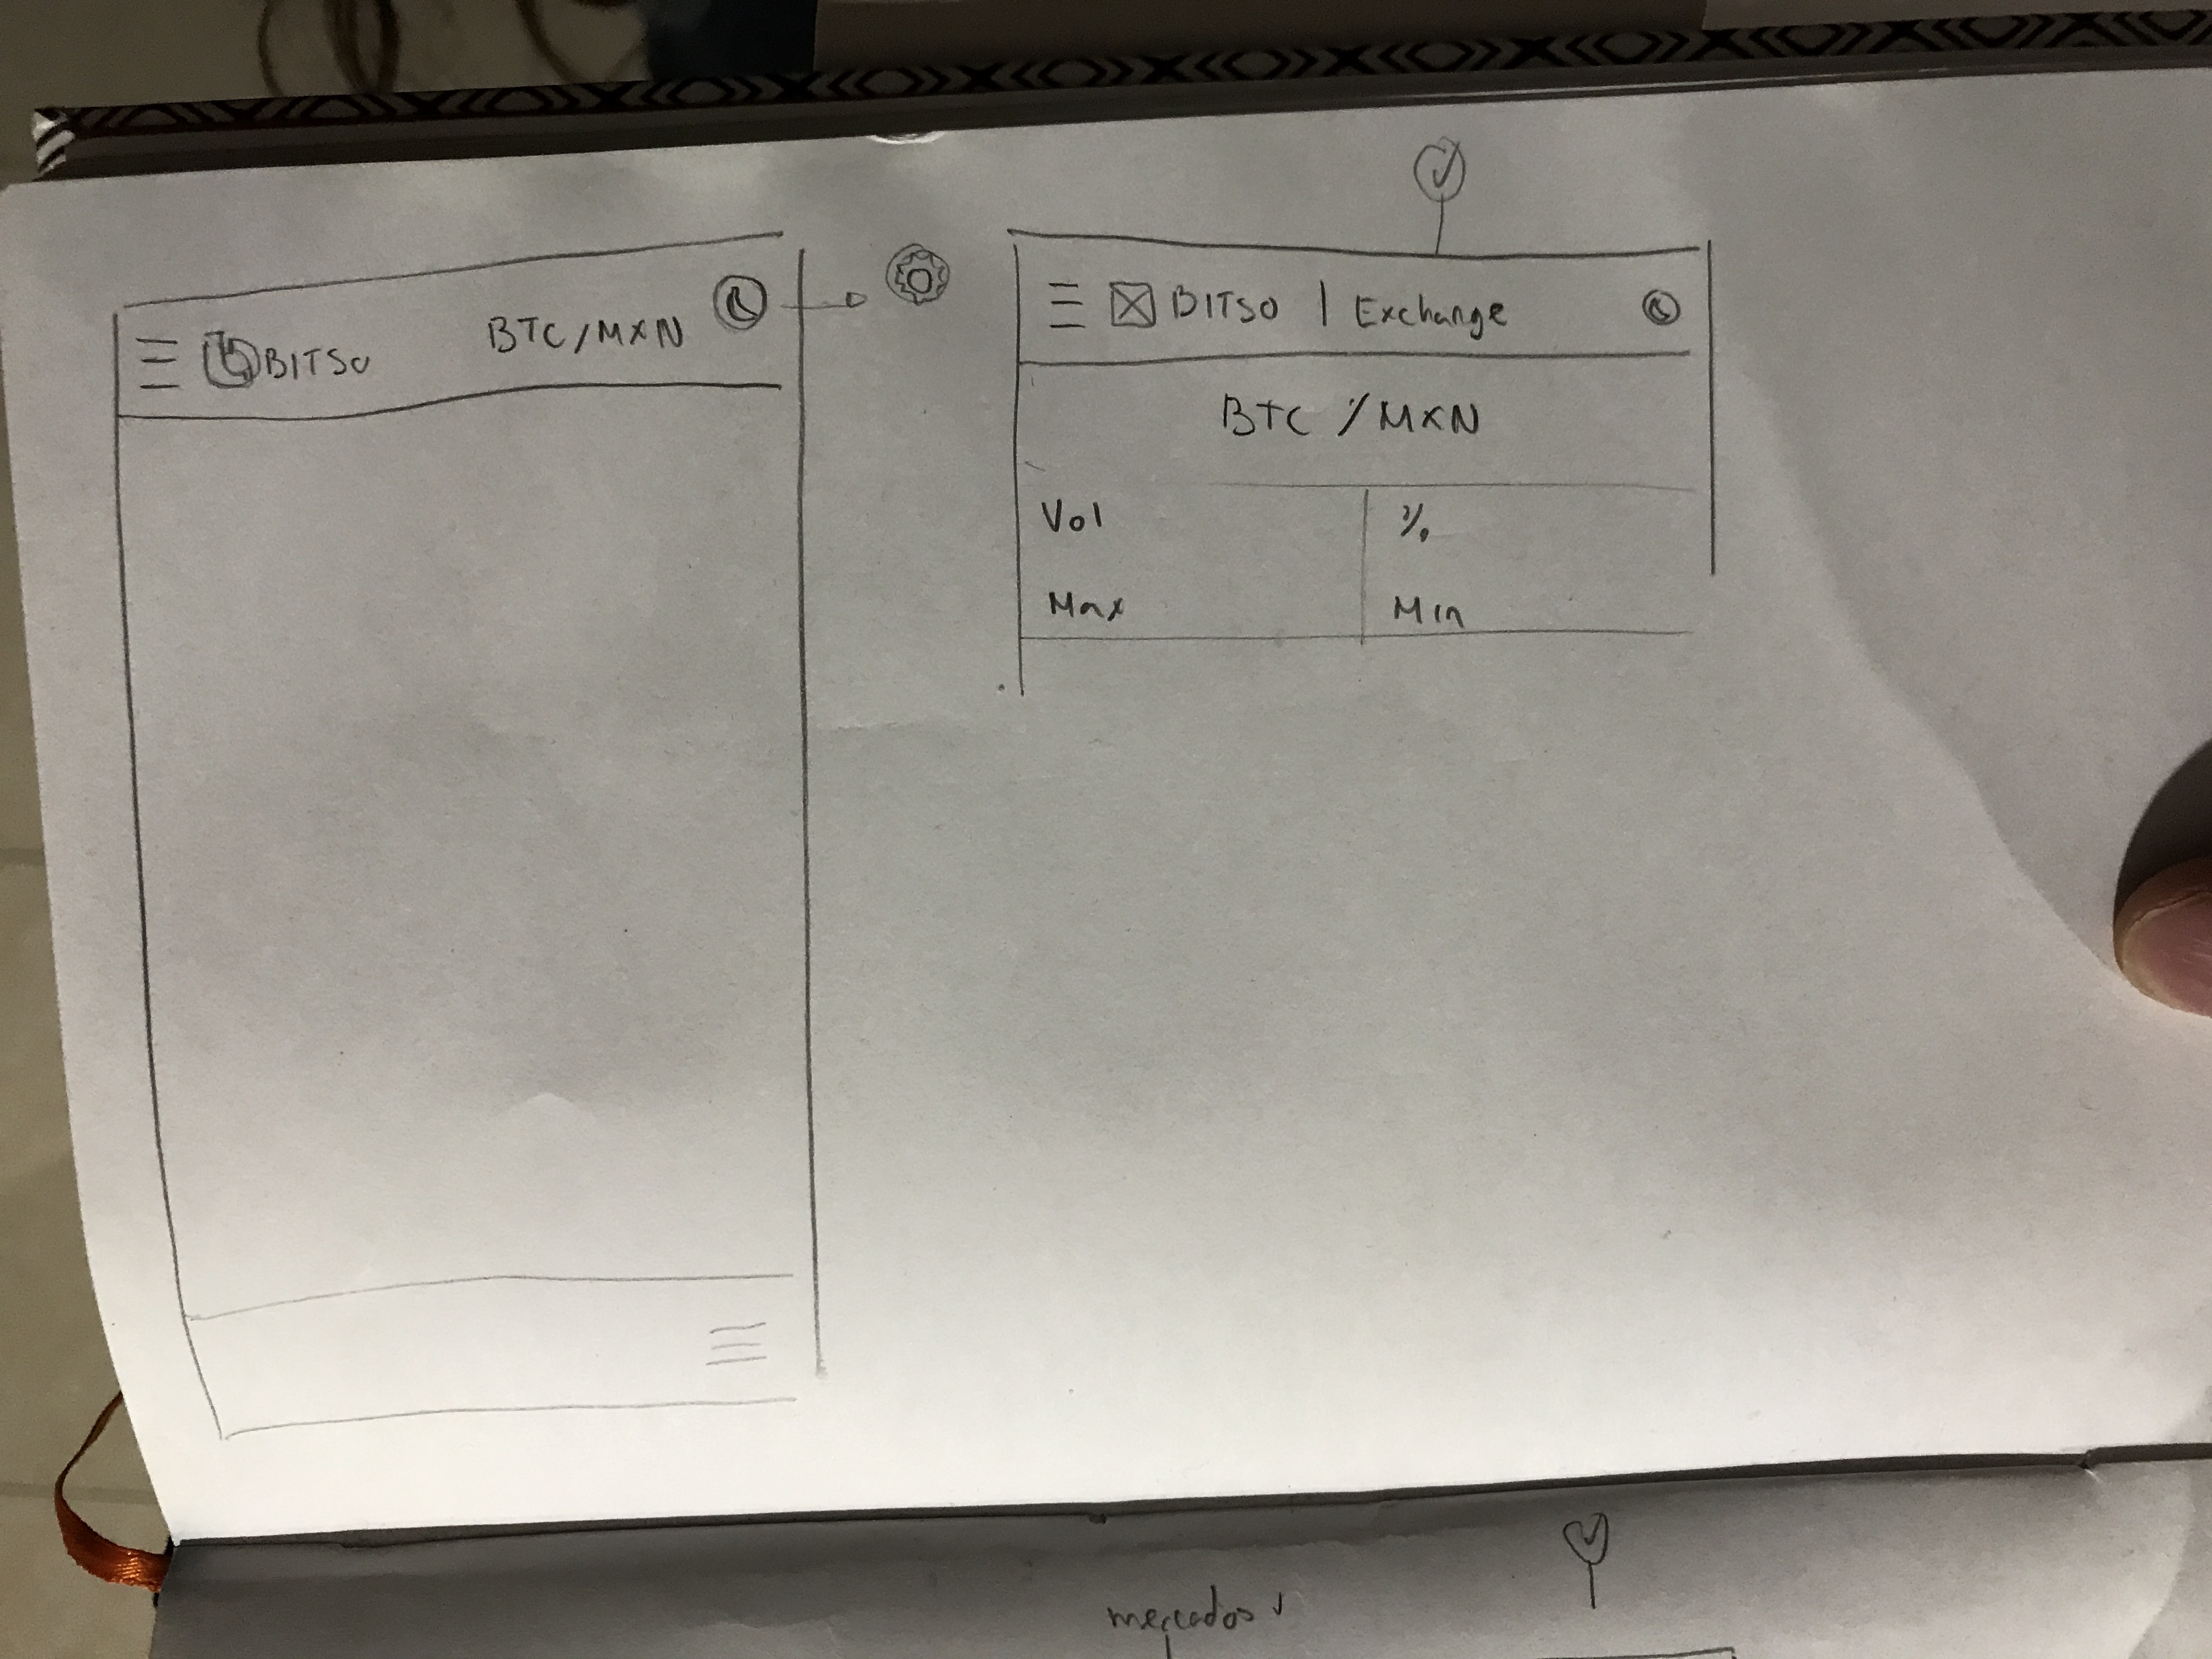 BITSO BTC/MXN
BITSO | Exchange
BTC / MXN
Vol %
Max Min
mercados